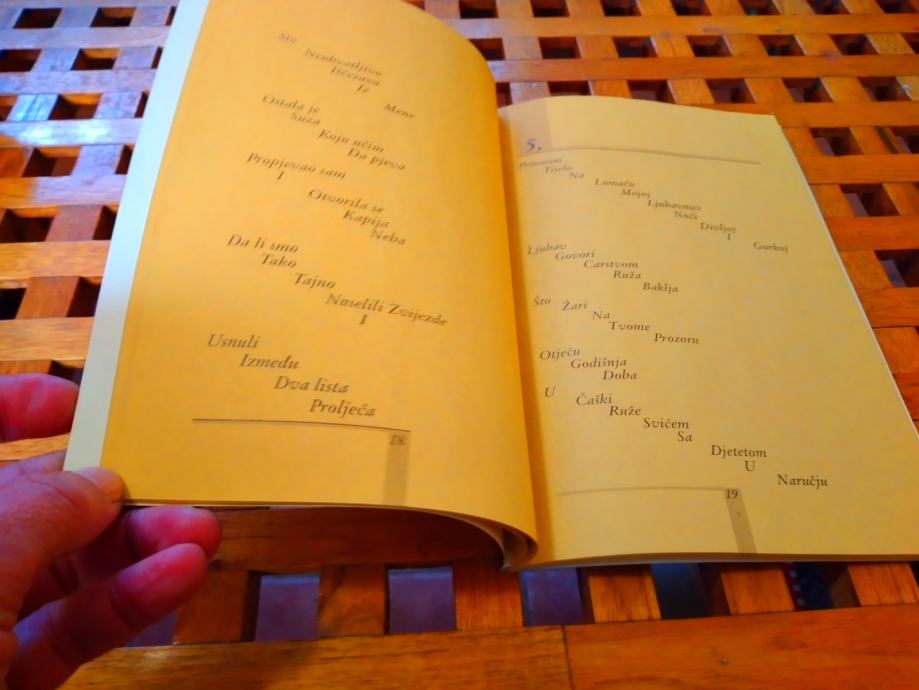 Što
Neuhvatljivo
Iščezava
Iz
Mene
Ostala je
Suza
Koju učim
Da pjeva
Propjevao sam
I
Otvorila se
Kapija
Neba
Da li smo
Tako
Tajno
Naselili Zvijezde
I
Usnuli
Između
Dva lista
Proljeća
18
5.
Prinosim
Tijelo
Na
Lomaču
Mojoj
Ljubavnici
Noći
Divljoj
I
Gorkoj
Ljubav
Govori
Carstvom
Ruža
Baklja
Što
Žari
Na
Tvome
Prozoru
Otječu
Godišnja
Doba
U
Čaški
Ruže
Svićem
Sa
Djetetom
U
Naručju
19